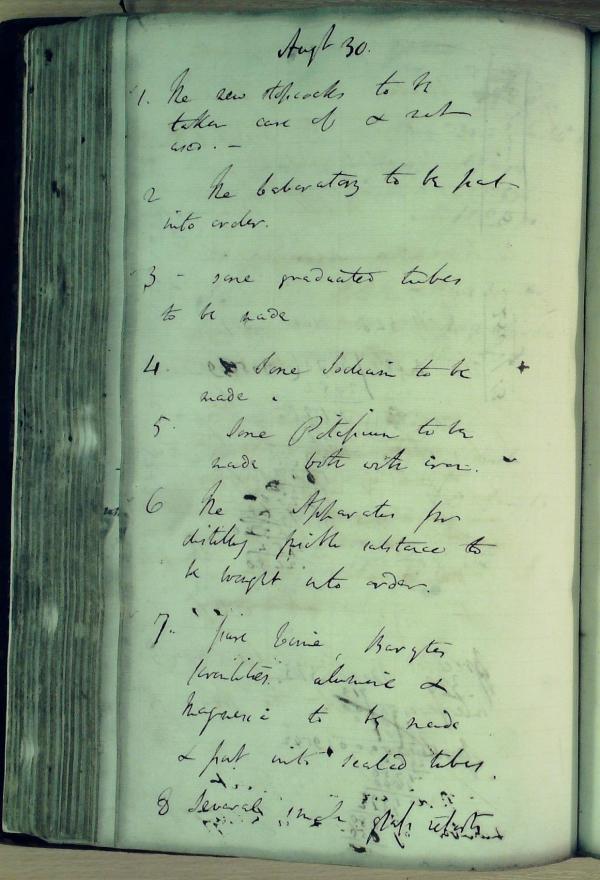 Augt 30.
1. The new stopcocks to be
taken care of & not
used. -
2 The Laboratory to be put
into order.
3 - some graduated tubes
to be made
4. Some Sodium to be
made.
5. Some Potassium to be
made both with iron.
6 The Apparatus for
distilling fusible substance to
be brought into order.
7. pure lime, Barytes
strontites alumine &
Magnesia to be made
& put into sealed tubes.
8 Several small glass retorts